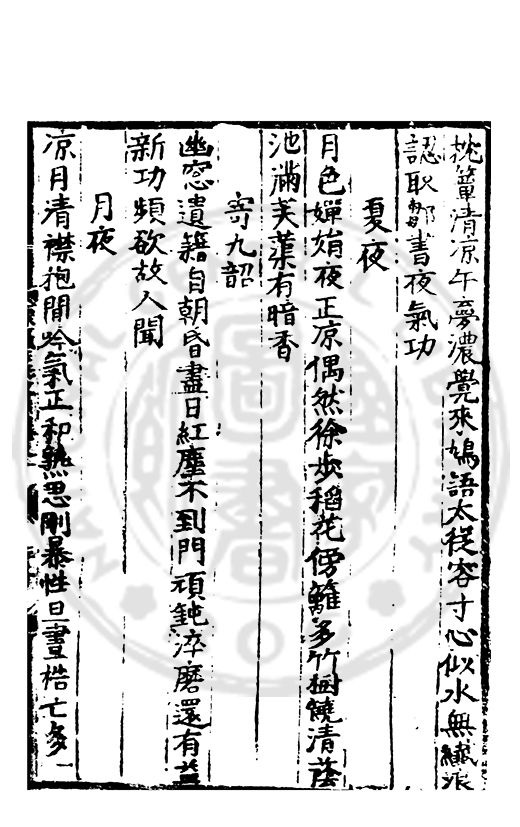 枕簟清凉午夢濃覺來鳩語太從容寸心似水無纎浪
認取鄒書夜氣功
夏夜
月色嬋娟夜正凉偶然徐步稻花傍籬多竹樹饒清蔭
池滿芙蕖有暗香
寄九韶
幽窓遺籍自朝昏盡日紅塵不到門頑鈍淬磨還有益
新功頻欲故人聞
月夜
凉月清襟抱閒吟氣正和熟思剛暴性旦晝梏亡多